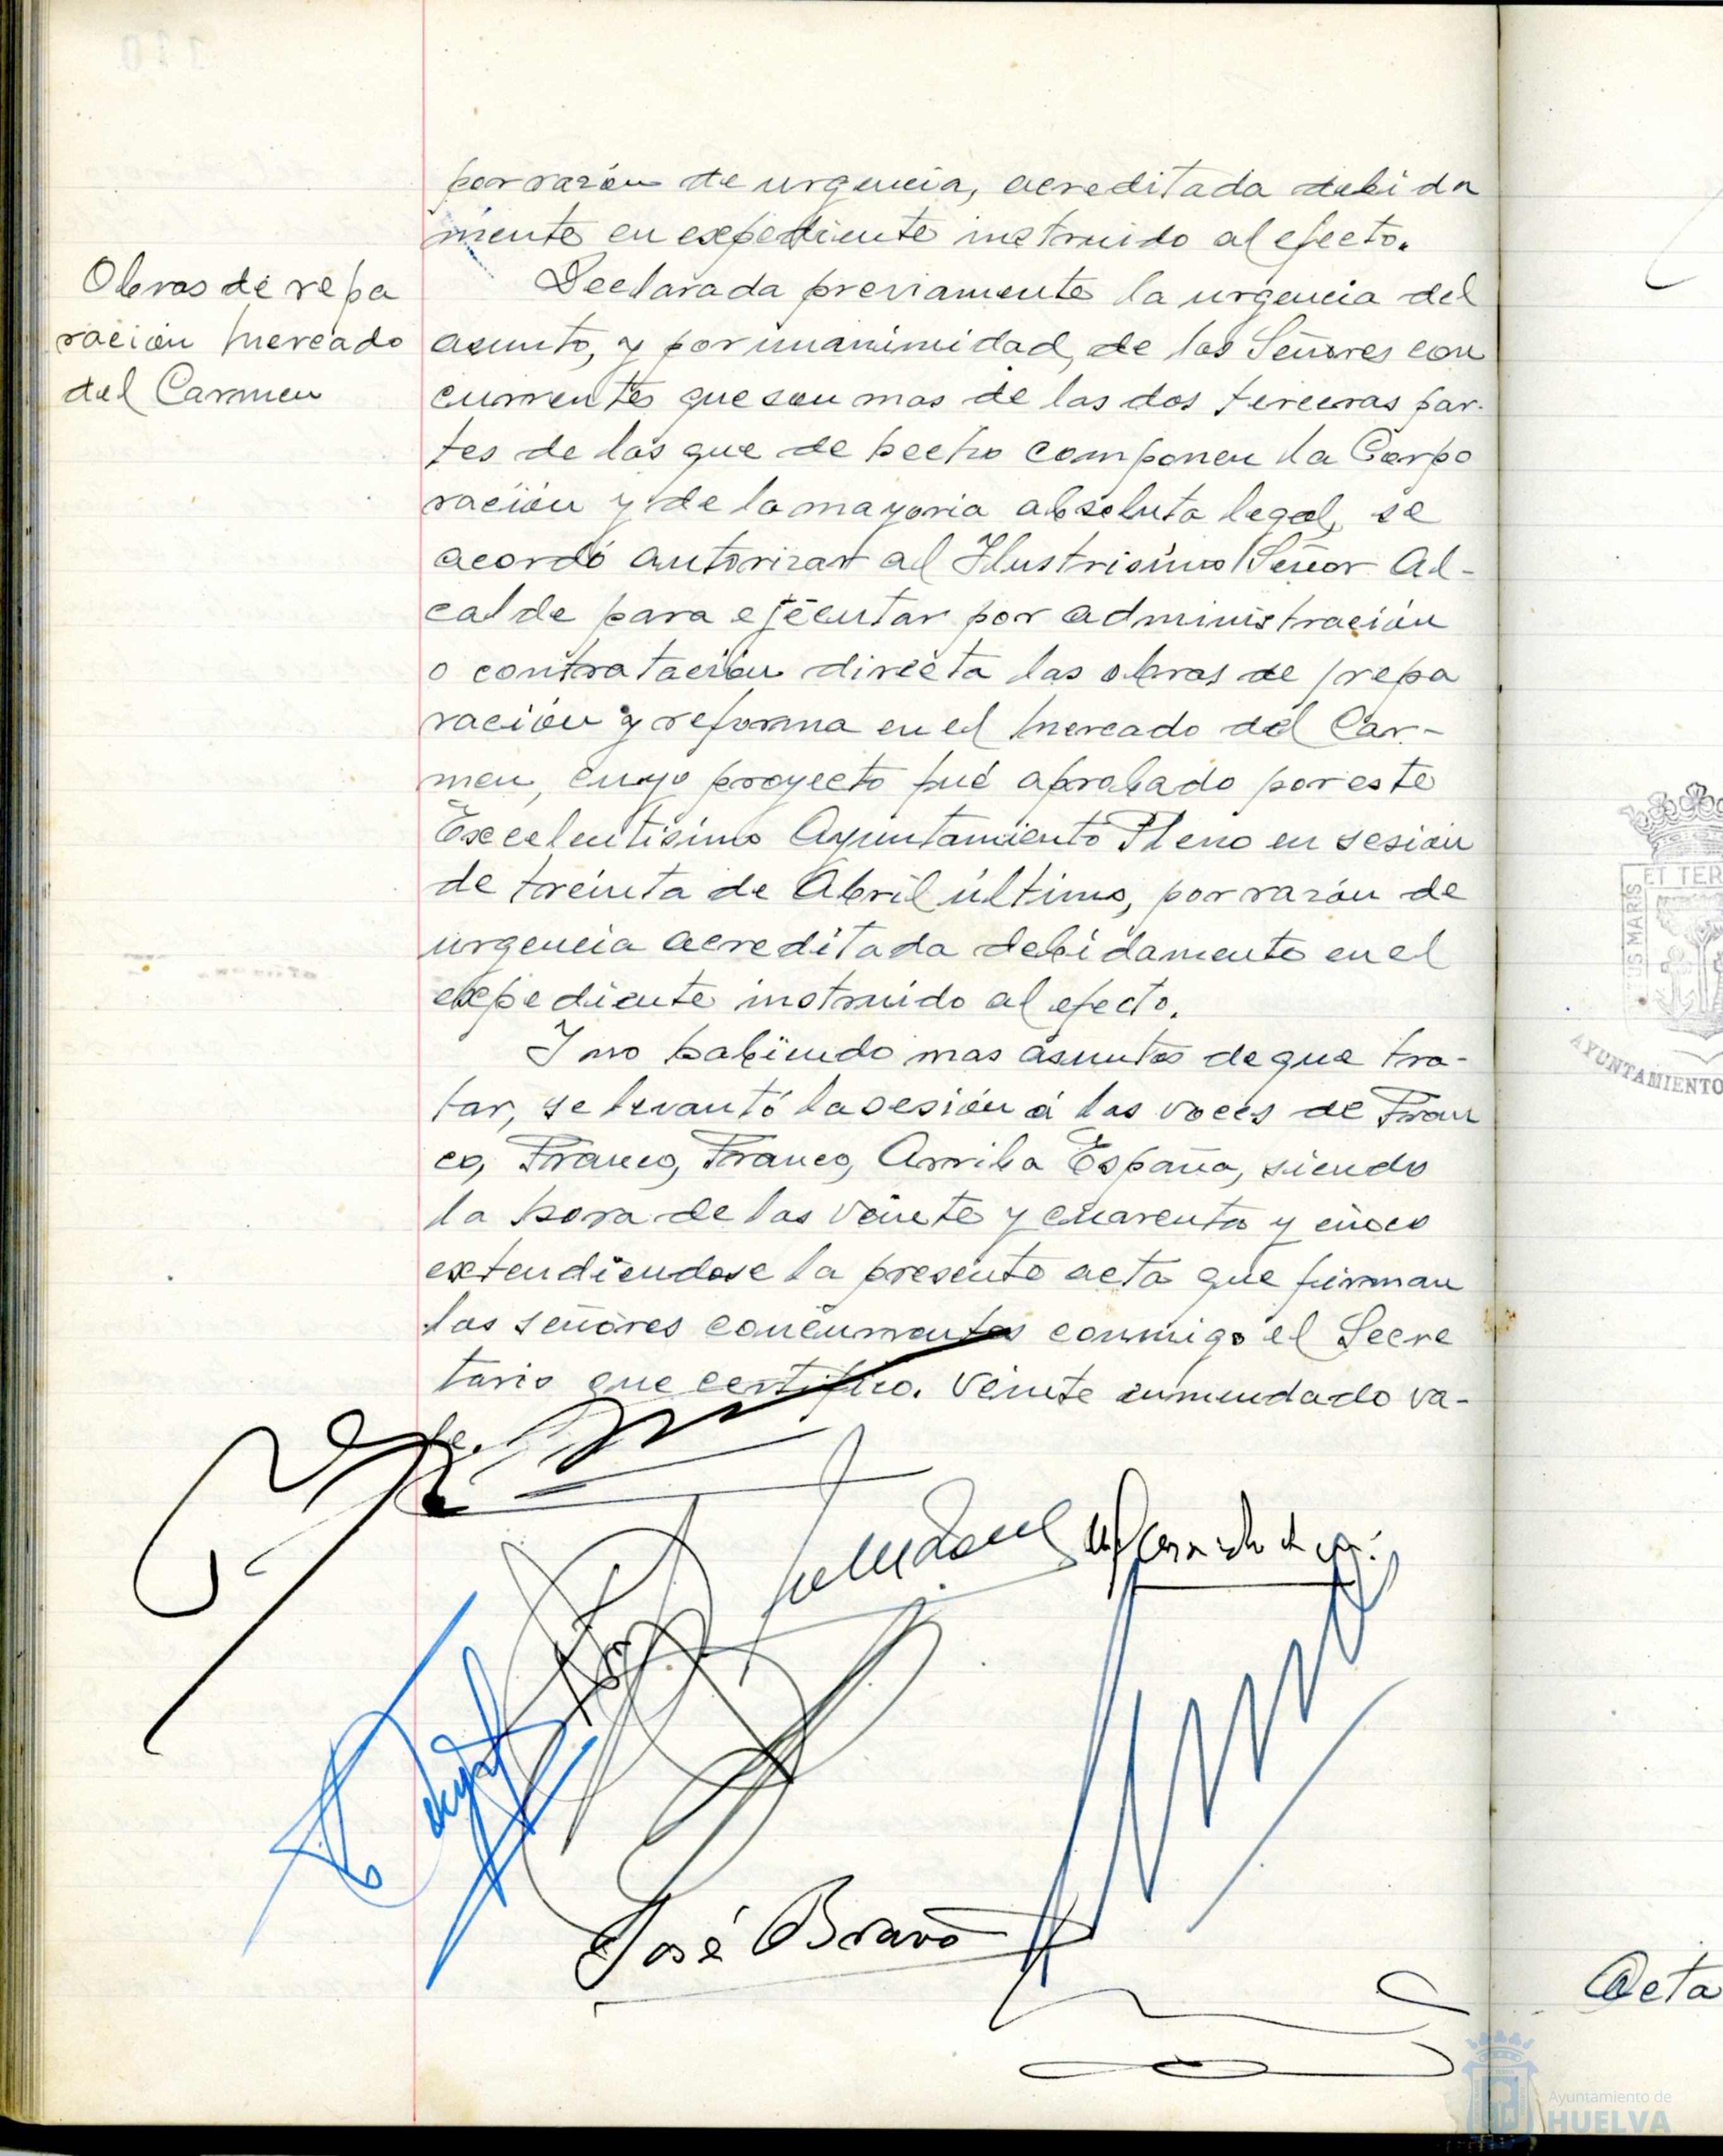 por razón de urgencia, acreditada debida
mente en expediente instruido al efecto.
Obras de repa
ración Mercado
del Carmen
Declarada previamente la urgencia del
asunto, y por unanimidad, de los Señores con
currentes que son mas de las dos terceras par-
tes de los que de hecho componen la Corpo
ración y de la mayoria absoluta legal, se
acordó autorizar al Ilustrisimo Señor Al-
calde para ejecutar por administración
o contratación directa las obras de repa
ración y reforma en el Mercado del Car-
men, cuyo proyecto fué aprobado por este
Excelentisimo Ayuntamiento Pleno en sesión
de treinta de Abril último, por razón de
urgencia acreditada debidamente en el
expediente instruido al efecto.
Y no habiendo mas asuntos de que tra-
tar, se levantó la sesión á las voces de Fran
co, Franco, Franco, Arriba España, siendo
la hora de las veinte y cuarenta y cinco
extendiendose la presente acta que firman
los señores concurrentes conmigo el Secre
tario que certifico. Veinte enmendado va-
le.
José Bravo
ET TER
US MARIS
AYUNTAMIENTO
Acta
Ayuntamiento de
HUELVA